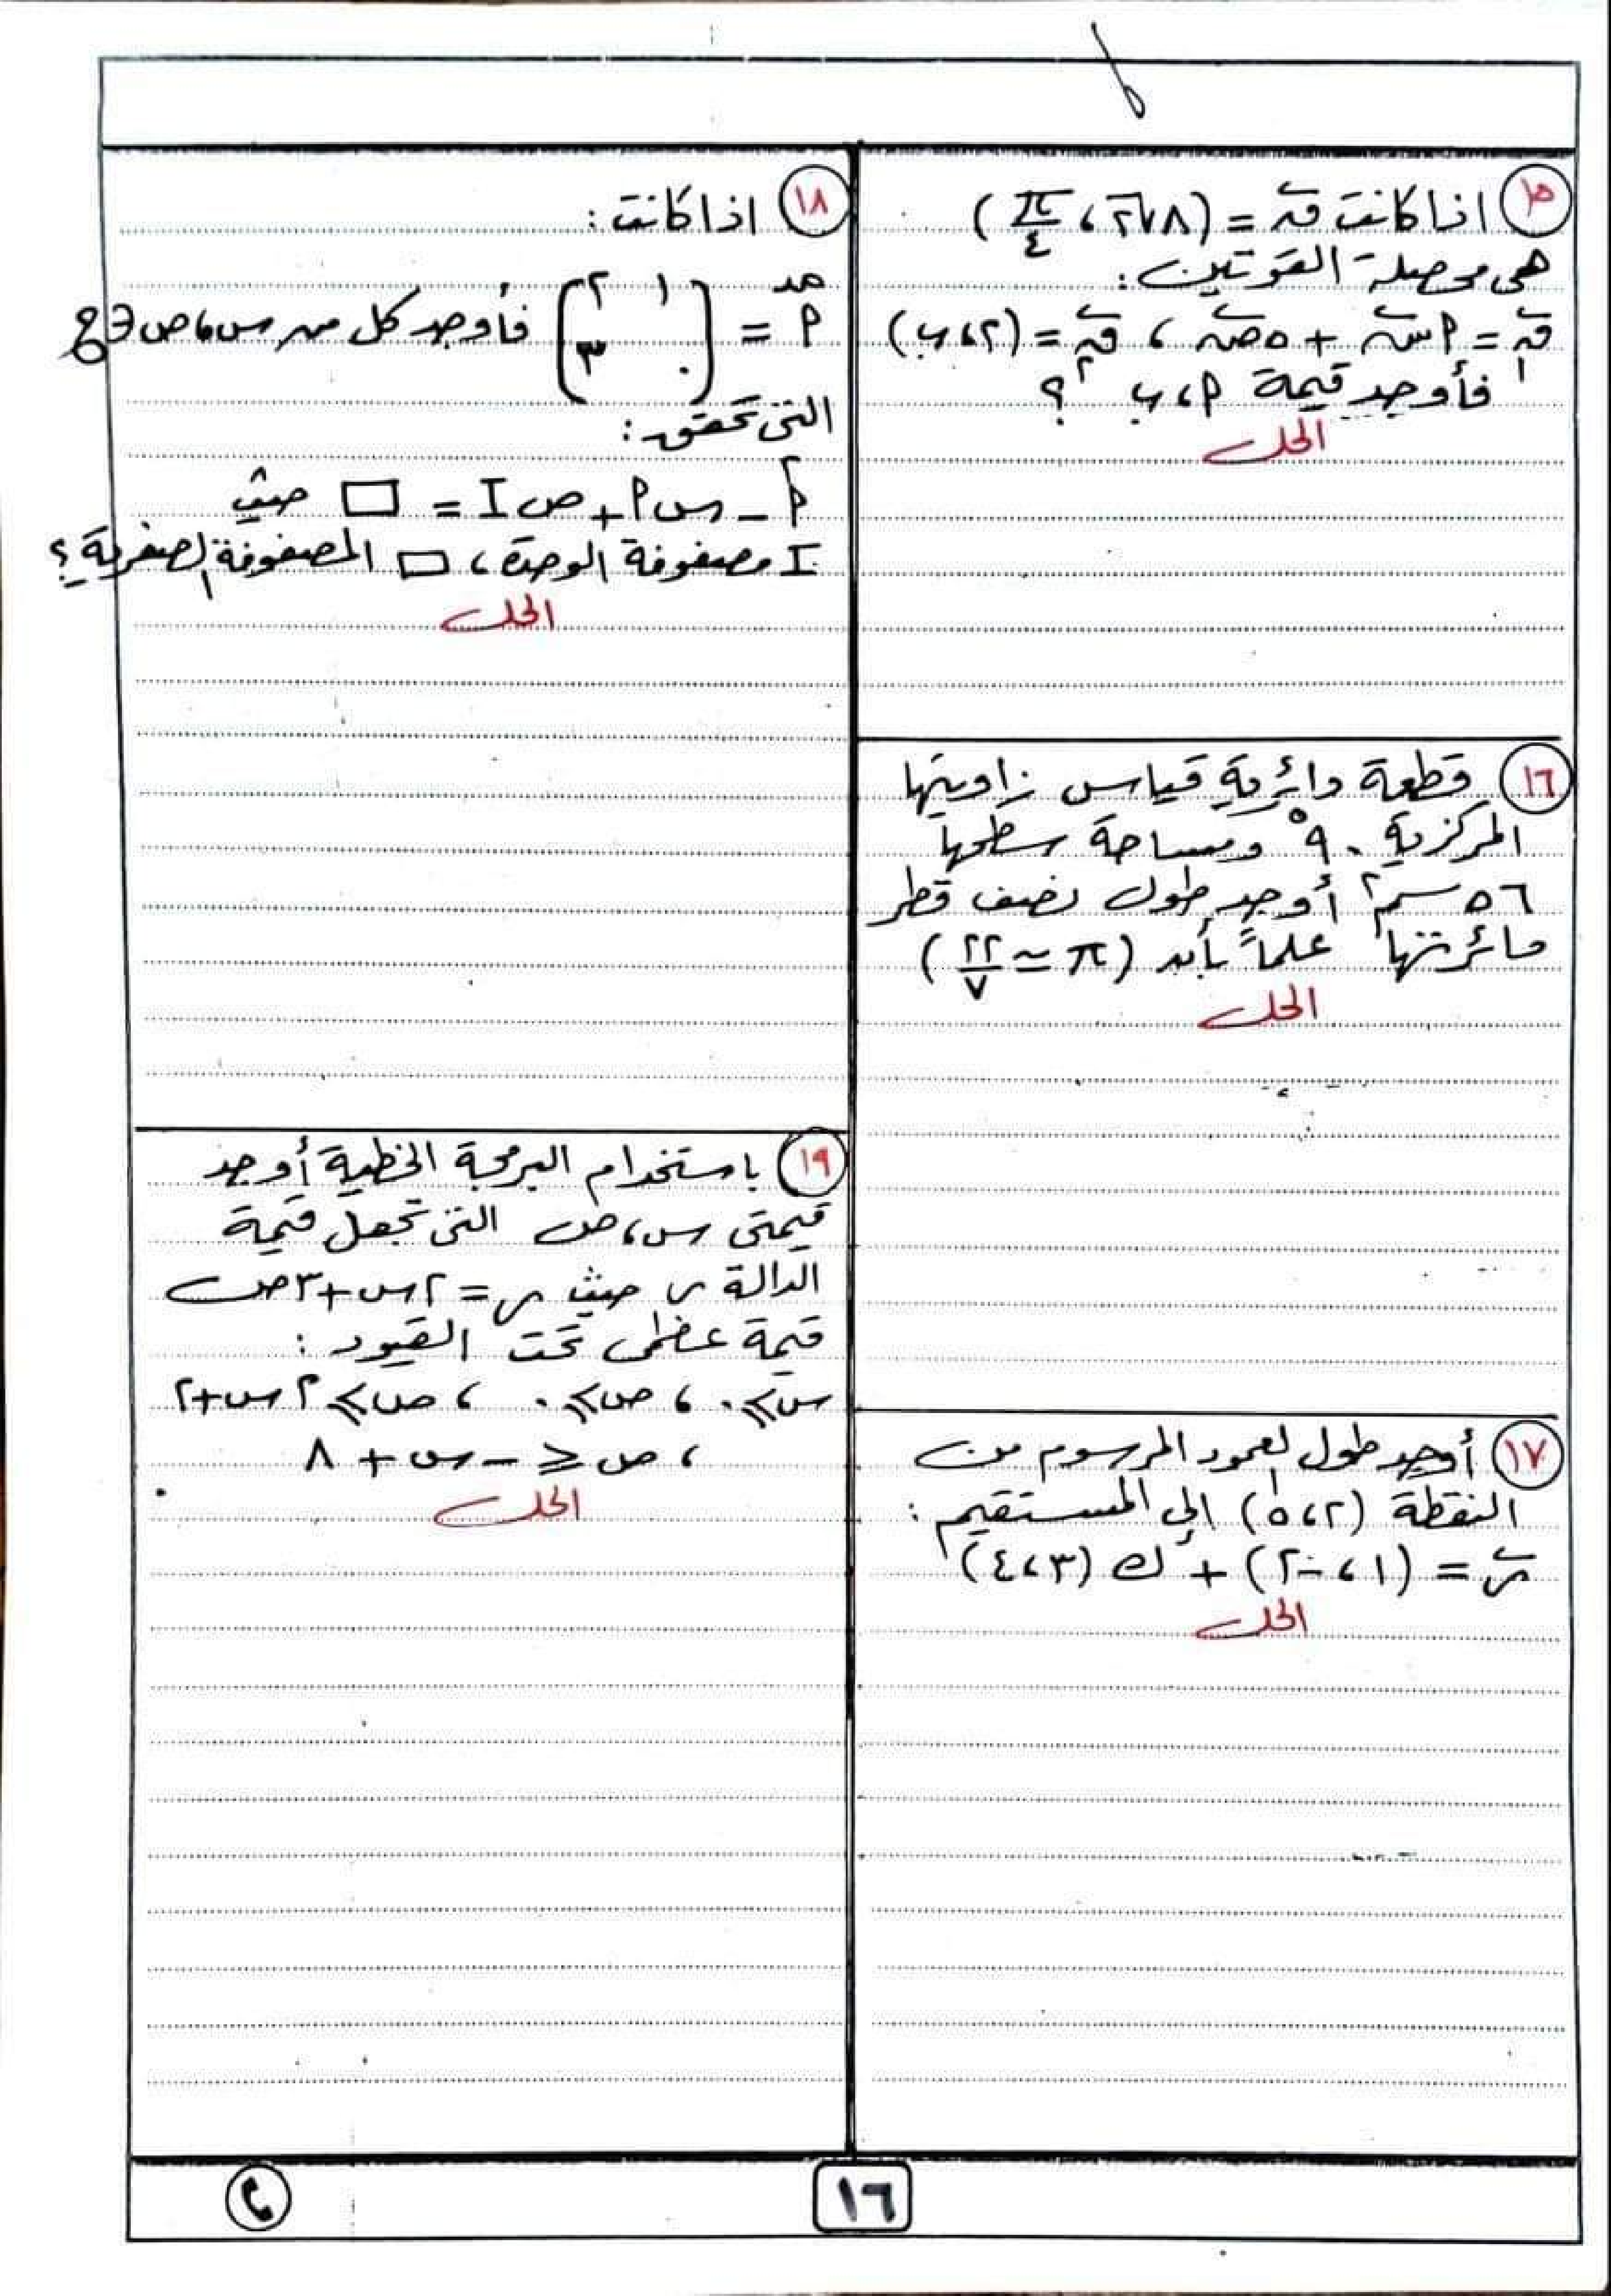 ١٥ اذا كانت ق = (٨√٢ ، π/٤)
هى محصلة القوتين :
ق١ = ٩س + ٥ص ، ق٢ = (٢ ، ب)
فأوجد قيمة ٩ ، ب ؟
الحل
١٦ قطعة دائرية قياس زاويتها
المركزية ٩٠° ومساحة سطحها
٥٦ سم٢ أوجد طول نصف قطر
دائرتها علماً بأن (π ≃ ٢٢/٧)
الحل
١٧ أوجد طول العمود المرسوم من
النقطة (٢ ، ٥) إلى المستقيم :
ر = (١ ، -٢) + ك (٣ ، ٤)
الحل
١٨ اذا كانت :
٩مد = (١ ٢
٠ ٣) فأوجد كل من س ، ص ∈ ع
التى تحقق :
٩٢ - س٩ + ص I = □ حيث
I مصفوفة الوحدة ، □ المصفوفة الصفرية ؟
الحل
١٩ باستخدام البرمجة الخطية أوجد
قيمتى س ، ص التى تجعل قيمة
الدالة ر حيث ر = ٢س + ٣ص
قيمة عظمى تحت القيود :
س ≥ ٠ ، ص ≥ ٠ ، ص ≥ ٢س + ٢
، ص ≤ -س + ٨
الحل
١٦